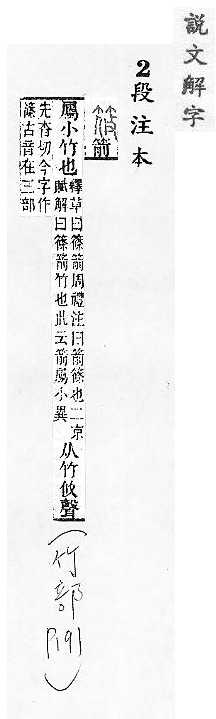 說文解字
2段注本
筱箭
屬小竹也釋草曰篠箭周禮注曰箭篠也二京
賦解曰篠箭竹也此云箭屬小異从竹攸聲
先杳切今字作
篠古音在三部
(竹部P191)